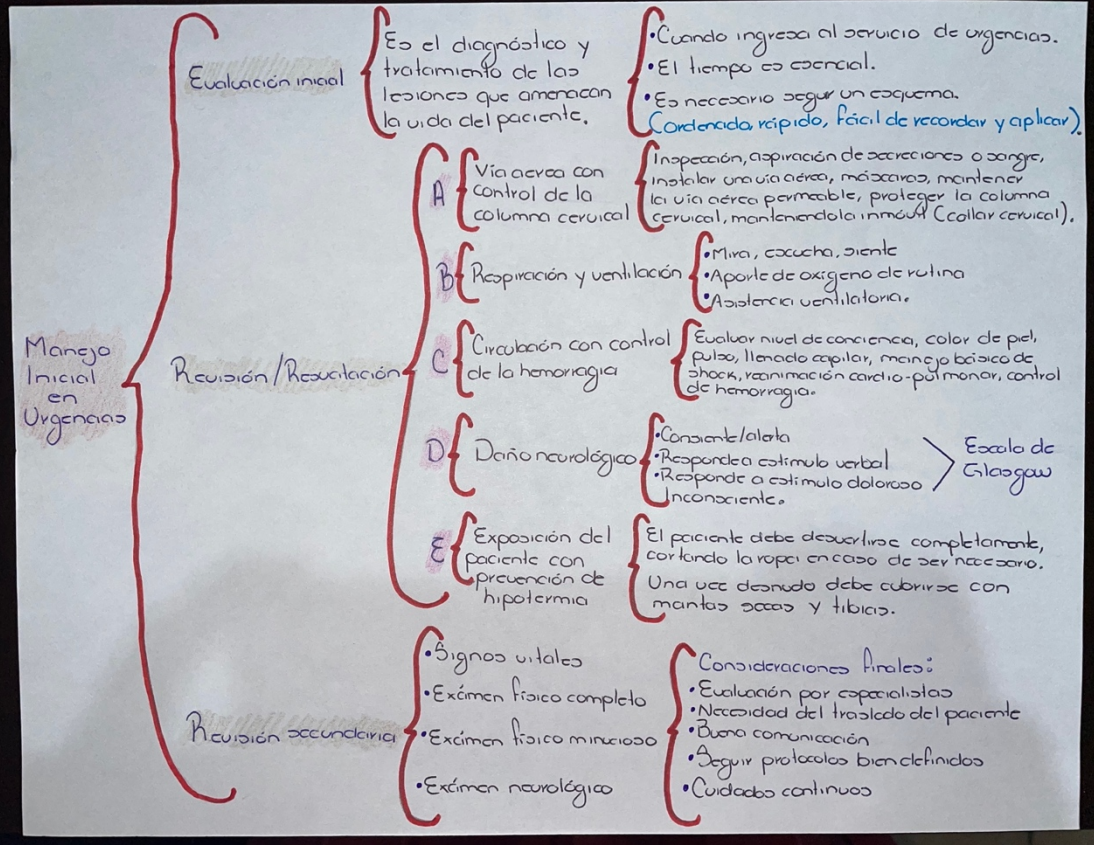 Manejo
Inicial
en
Urgencias
Evaluación inicial
Es el diagnóstico y
tratamiento de las
lesiones que amenazan
la vida del paciente.
•Cuando ingresa al servicio de urgencias.
•El tiempo es esencial.
•Es necesario seguir un esquema.
(ordenada, rápido, fácil de recordar y aplicar).
Revisión/Resucitación
A
Vía aerea con
control de la
columna cervical
Inspección, aspiración de secreciones o sangre,
instalar una vía aérea, máscaras, mantener
la vía aérea permeable, proteger la columna
cervical, manteniendola inmóvil (collar cervical).
B
Respiración y ventilación
•Mira, escucha, siente
•Aporte de oxígeno de rutina
•Asistencia ventilatoria.
C
Circulación con control
de la hemorragia
Evaluar nivel de conciencia, color de piel,
pulso, llenado capilar, manejo básico de
shock, reanimación cardio-pulmonar, control
de hemorragia.
D
Daño neurológico
•Consiente/alerta
•Responde a estimulo verbal
•Responde a estimulo doloroso
Inconsciente.
Escala de
Glasgow
E
Exposición del
paciente con
prevención de
hipotermia
El paciente debe desvertirse completamente,
cortando la ropa en caso de ser necesario.
Una vez desnudo debe cubrirse con
mantas secas y tibias.
Revisión secundaria
•Signos vitales
•Exámen físico completo
•Exámen físico minucioso
•Exámen neurológico
Consideraciones finales:
•Evaluación por especialistas
•Necesidad del traslado del paciente
•Buena comunicación
•Seguir protocolos bien definidos
•Cuidados continuos